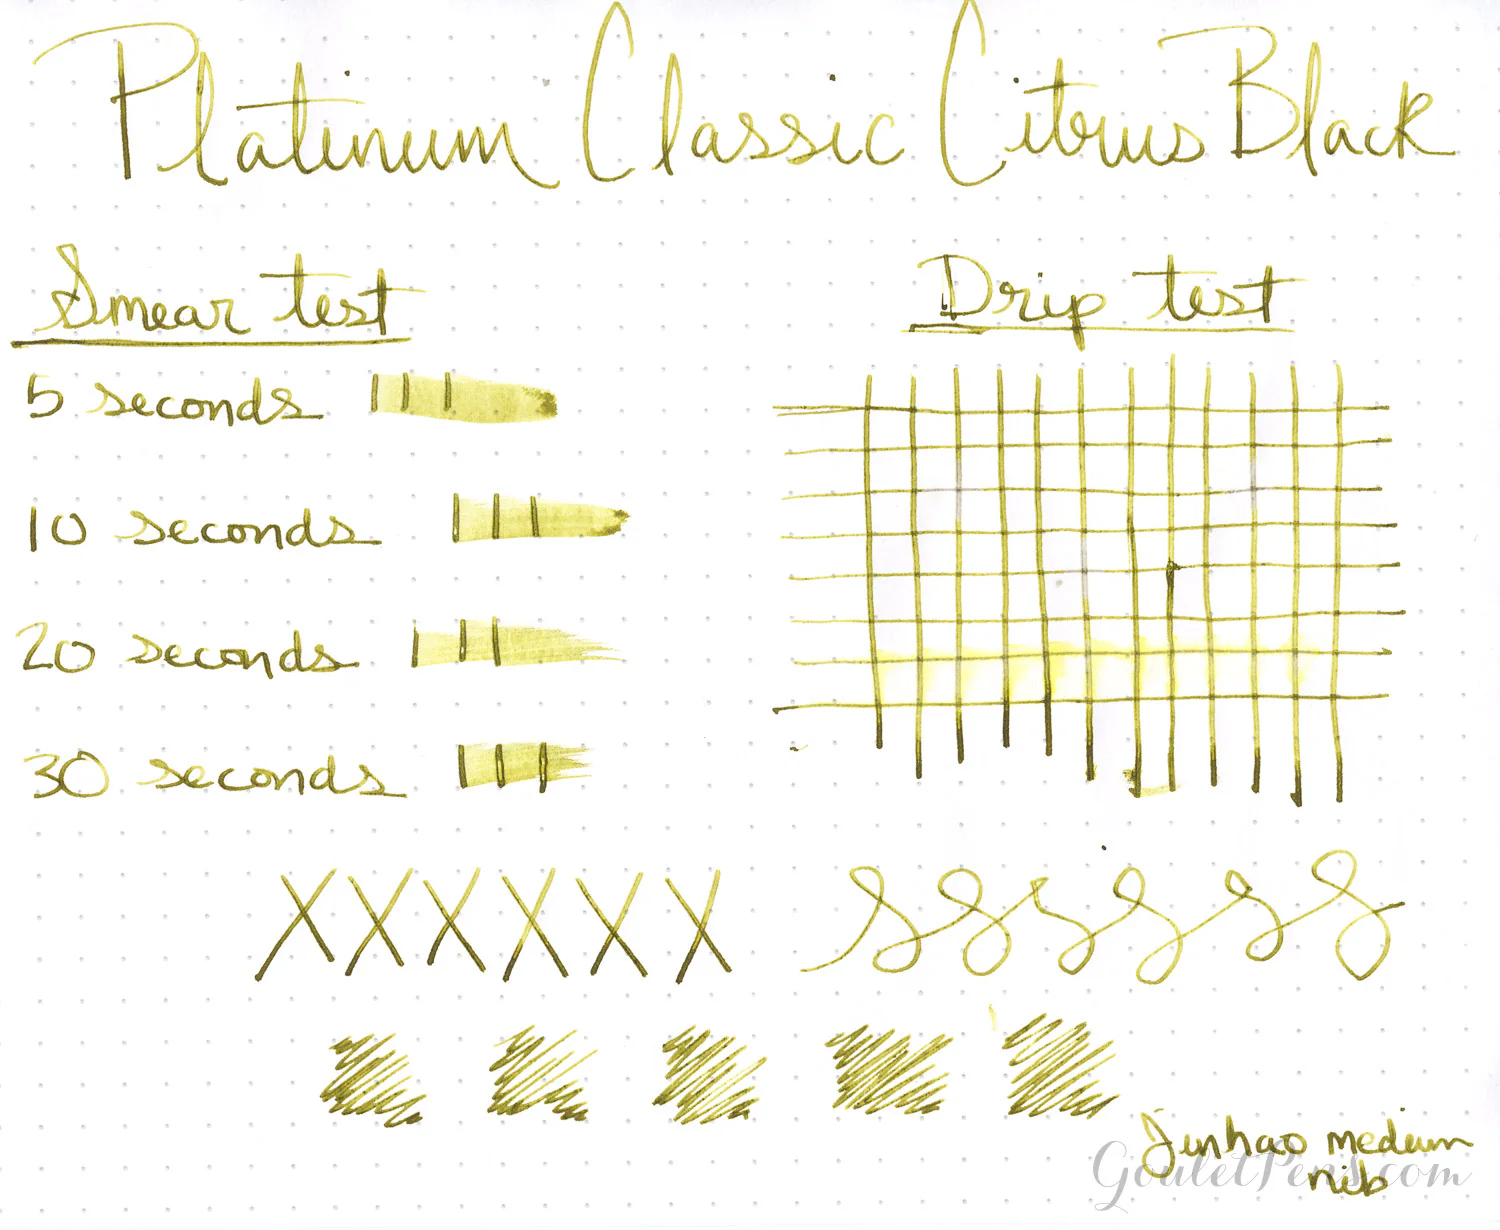 Platinum Classic Citrus Black
Smear test
Drip test
5 seconds
10 seconds
20 seconds
30 seconds
XXXXXX
Jinhao medium
nib
GouletPens.com